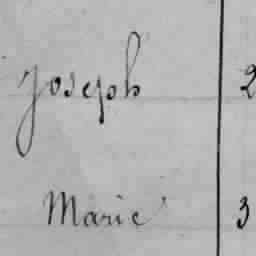 Joseph 2
Marie 3